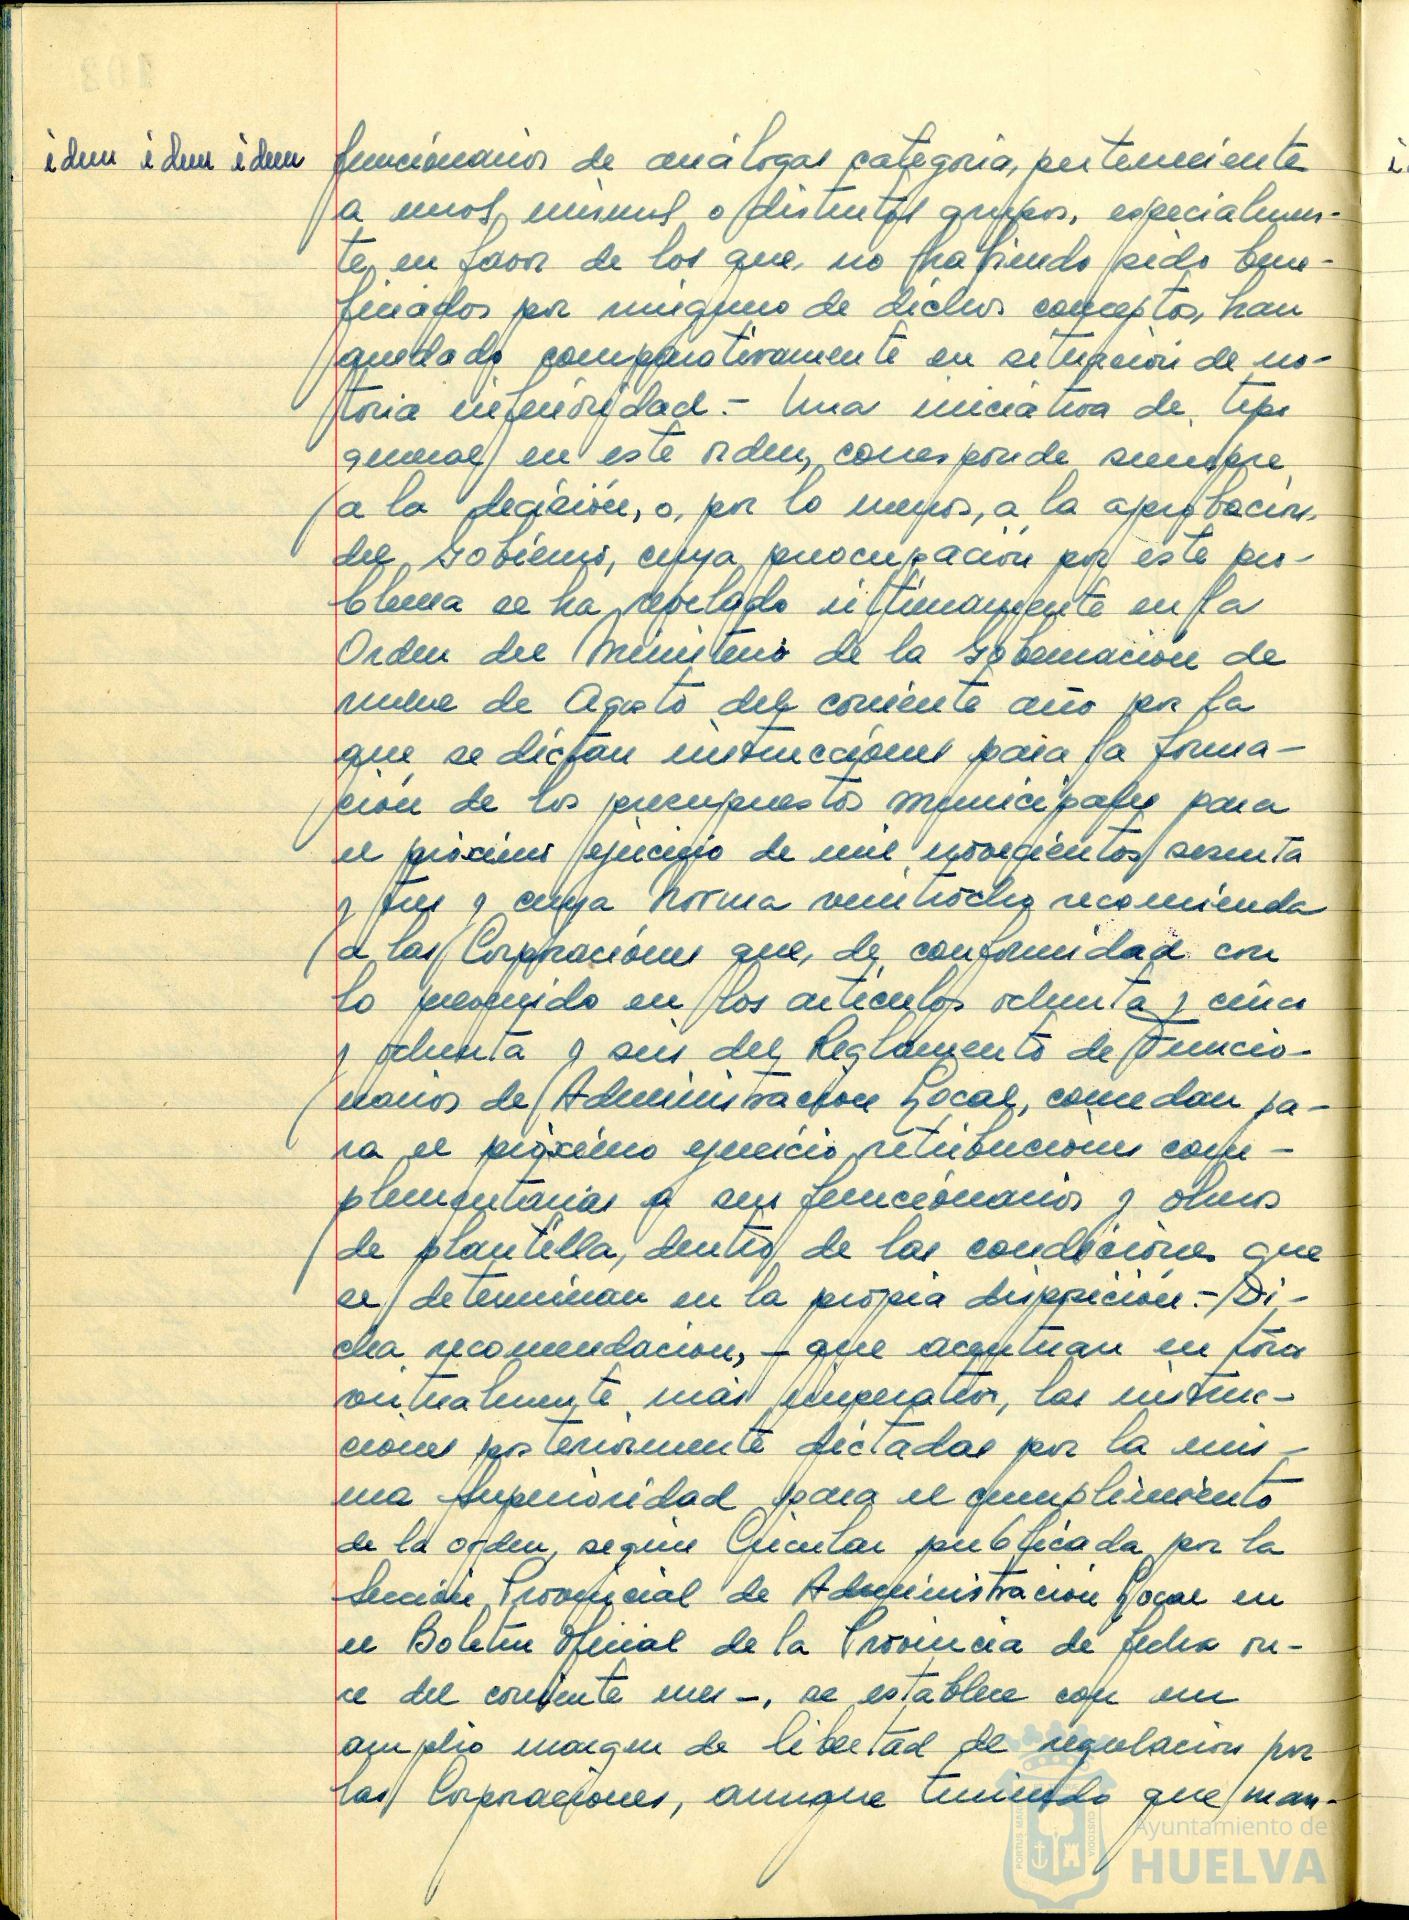 idem idem idem
funcionarios de análogas categoria, perteneciente
a unos mismos o distintos grupos, especialmen-
te, en favor de los que, no habiendo sido bene-
ficiados por ninguno de dichos conceptos, han
quedado comparativamente en situación de no-
toria inferioridad.- Una iniciativa de tipo
general en este orden, corresponde siempre
a la decisión, o, por lo menos, a la aprobación,
del Gobierno, cuya preocupación por este pro-
blema se ha reflejado últimamente en la
Orden del Ministerio de la Gobernación de
nueve de Agosto del corriente año por la
que se dictan instrucciones para la forma-
ción de los presupuestos municipales para
el próximo ejercicio de mil novecientos sesenta
y tres y cuya norma veintiocho recomienda
a las Corporaciones que, de conformidad con
lo prevenido en los artículos ochenta y cinco
y ochenta y seis del Reglamento de Funcio-
narios de Administración Local, concedan pa-
ra el próximo ejercicio retribuciones com-
plementarias a sus funcionarios y obreros
de plantilla, dentro de las condiciones que
se determinan en la propia disposición.- Di-
cha recomendación, - que acentuan en tono
virtualmente más imperativo, las instruc-
ciones posteriormente dictadas por la mis-
ma Superioridad para el cumplimiento
de la orden, según Circular publicada por la
Sección Provincial de Administración Local en
el Boletín Oficial de la Provincia de fecha on-
ce del corriente mes -, se establece con un
amplio margen de libertad de regulación por
las Corporaciones, aunque teniendo que man-
Ayuntamiento de
HUELVA